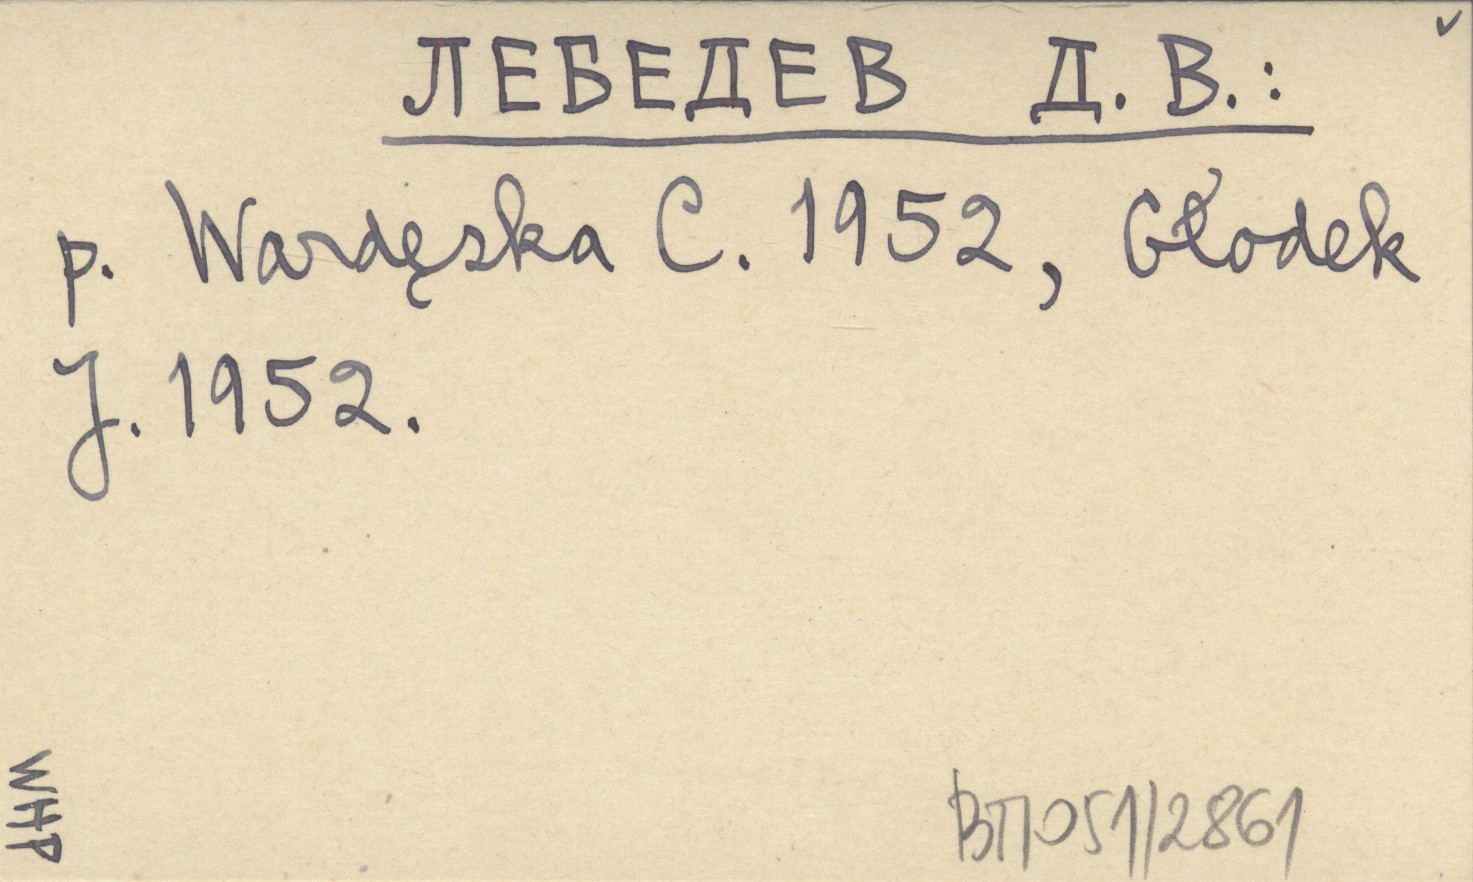 ЛЕБЕДЕВ Д. В.:
p. Wardęska C. 1952, Głodek
J. 1952.
WHP
ВП051/2861